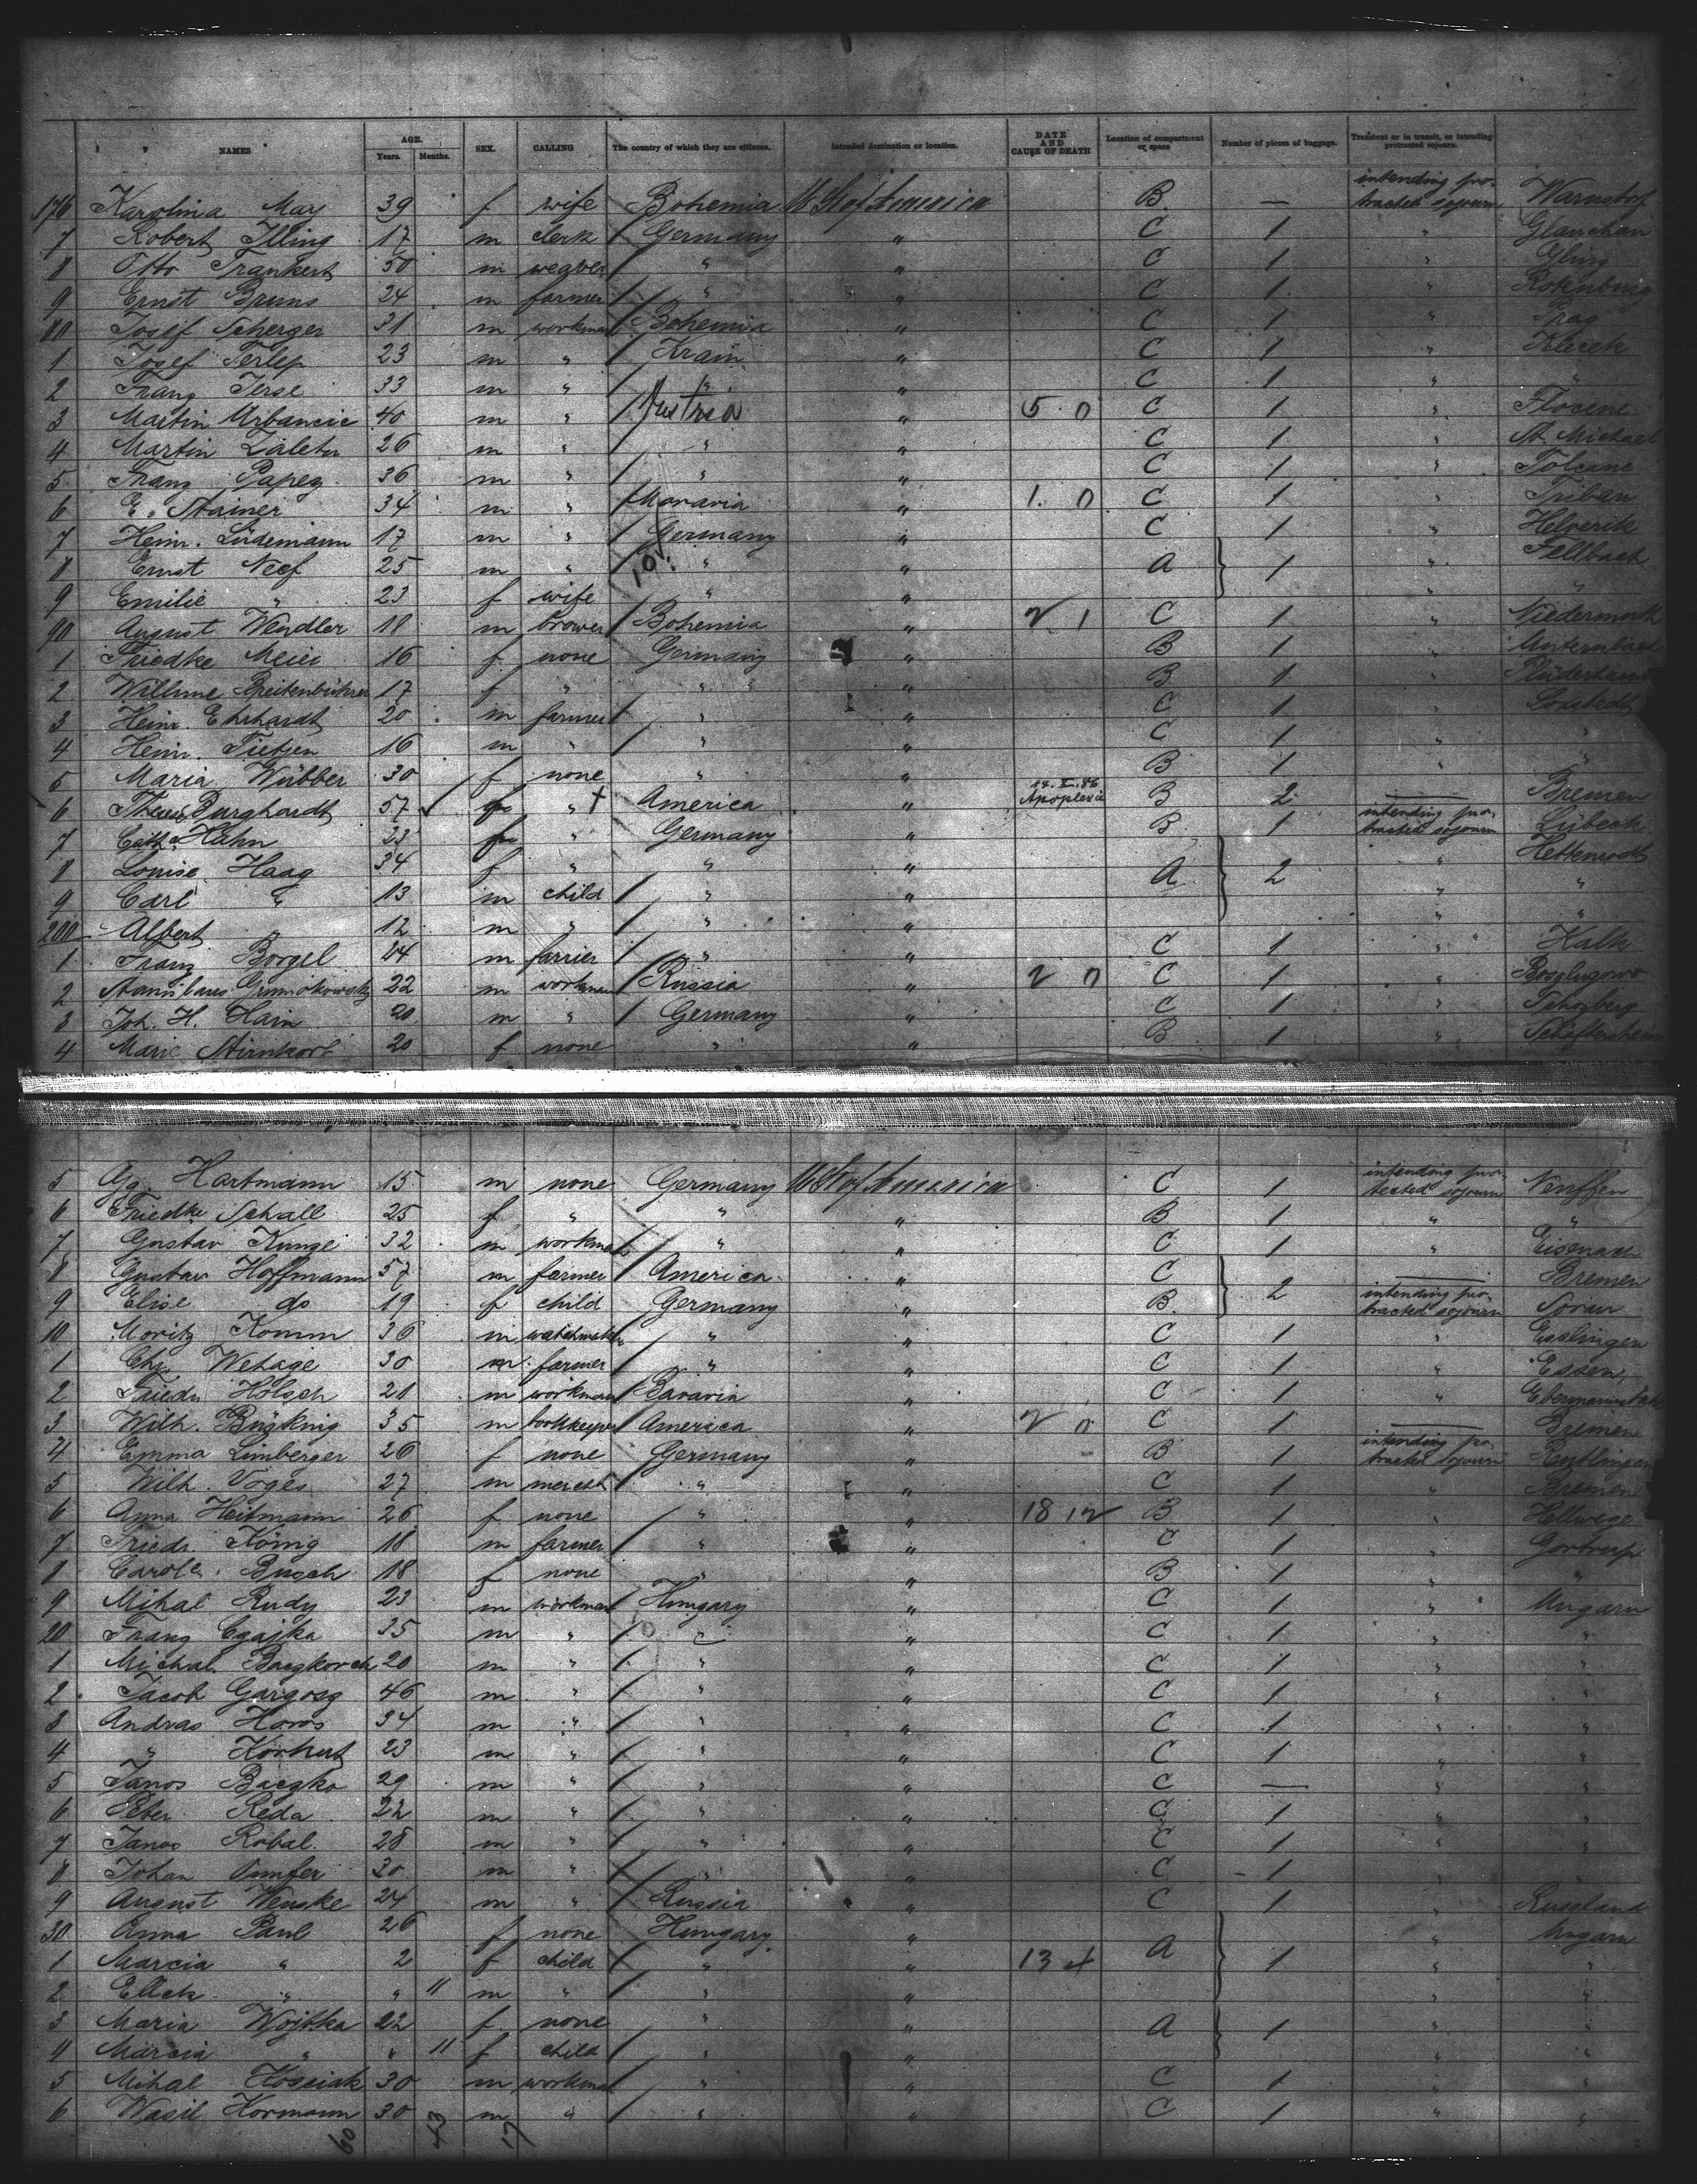 NAMES AGE. Years. Months. SEX. CALLING The country of which they are citizens. Intended destination or location. DATE AND CAUSE OF DEATH Location of compartment or space Number of pieces of baggage. Transient or in transit, or intending protracted sojourn.
176 Karolina May 39 f wife Bohemia U St of America B — intending protracted sojourn Warnsdorf
7 Robert Illing 17 m clerk / Germany " C 1 " Glauchau
8 Otto Frankert 50 m weaver / " " C 1 "
9 Ernst Bruns 24 m farmer / " " C 1 " Rotenburg
80 Josef Scherger 31 m workman / Bohemia " C 1 " Prag
1 Josef Terlep 23 m " / Krain " C 1 "
2 Franz Terse 33 m " / " " C 1 " "
3 Martin Urbancic 40 m " / Austria " 5 0 C 1 "
4 Martin 26 m " / " " C 1 " St. Michael
5 Franz Papez 36 m " / " " C 1 "
6 E. Stainer 34 m " / Moravia " 1. 0 C 1 " Tribau
7 Heinr. Lüdemann 17 m " / Germany " C 1 "
8 Ernst Neef 25 m " / " " A } 1 " Fellbach
9 Emilie " 23 f wife " " " "
90 August Wendler 18 m brower / Bohemia " 2 1 C 1 "
1 Friedke Meier 16 f none Germany " B 1 "
2 Willmne 17 f " " " B 1 "
3 Heinr. Ehrhardt 20 m farmer / " " C 1 " Loxstedt
4 Heinr. Tietjen 16 m " / " " C 1 " "
5 Maria Wübber 30 f none " " B 1 " "
6 Burghardt 57 f " † America " Apoplexie B 2 — Bremen
7 Cath. Hahn 23 f " Germany " B 1 intending protracted sojourn Lübeck
8 Louise Haag 34 f " " " A } 2 "
9 Carl " 13 m child / " " " "
200 Albert " 12 m " / " " " "
1 Franz Borgel 24 m farrier / " " C 1 " Kalk
2 Stanislaus 22 m workman / Russia " 2 0 C 1 "
3 Joh. H. Hain 20 m " / Germany " C 1 "
4 Marie Stirnkorb 20 f none " " B 1 "
5 Hartmann 15 m none Germany U St of America C 1 intending protracted sojourn Neuffen
6 Friedke Schall 25 f " " " B 1 " "
7 Gustav Kunze 32 m workman / " " C 1 " Eisenach
8 Gustav Hoffmann 57 m farmer / America " C } 2 — Bremen
9 Elise do 19 f child Germany " B intending protracted sojourn Sorau
10 Moritz Komm 36 m watchmaker / " " C 1 " Esslingen
1 Chr. Wehage 30 m farmer / " " C 1 " Essen
2 Friedr. Hölsch 21 m workman / Bavaria " C 1 "
3 Wilh. Büsking 35 m bookkeeper / America " 2 0 C 1 — Bremen
4 Emma Limberger 26 f none Germany " B 1 intending protracted sojourn Reutlingen
5 Wilh. Voges 27 m mercht / " " C 1 " Bremen
6 Anna Heitmann 26 f none " " 18 12 B 1 " Hellwege
7 Friedr. König 18 m farmer / " " C 1 "
8 Busch 18 f none " " B 1 " "
9 Mihal Rudy 23 m workman / Hungary " C 1 " Ungarn
20 Franz Czajka 35 m " / " " C 1 " "
1 Michal 20 m " / " " C 1 " "
2 Jacob Gargosz 46 m " / " " C 1 " "
3 Andras Horos 34 m " / " " C 1 " "
4 " Korhut 23 m " / " " C 1 " "
5 Janos Baczko 29 m " / " " C — " "
6 Peter Reda 22 m " / " " C 1 " "
7 Janos Robal 28 m " / " " C 1 " "
8 Johan 30 m " / " " C 1 " "
9 August Wenske 24 m " / Russia " C 1 " Russland
30 Anna Paul 26 f none Hungary " A } 1 " Ungarn
1 Marcia " 2 f child / " " 13 4 " "
2 Ellek " " 11 m " / " " " "
3 Maria Wojtka 22 f none " " A } 1 " "
4 Marcia " " 11 f child / " " " "
5 Mihal Kosciak 30 m workman / " " C 1 " "
6 Wasil Hormann 30 m " / " " C 1 " "
60 43 17